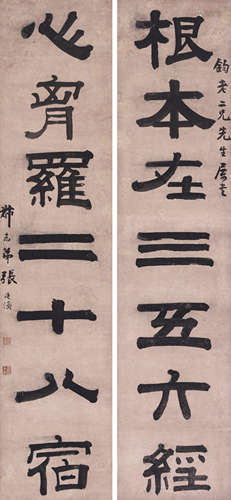 鈞老二兄先生屬
根本在三五六經
心胷羅二十八宿
叔未弟張廷濟